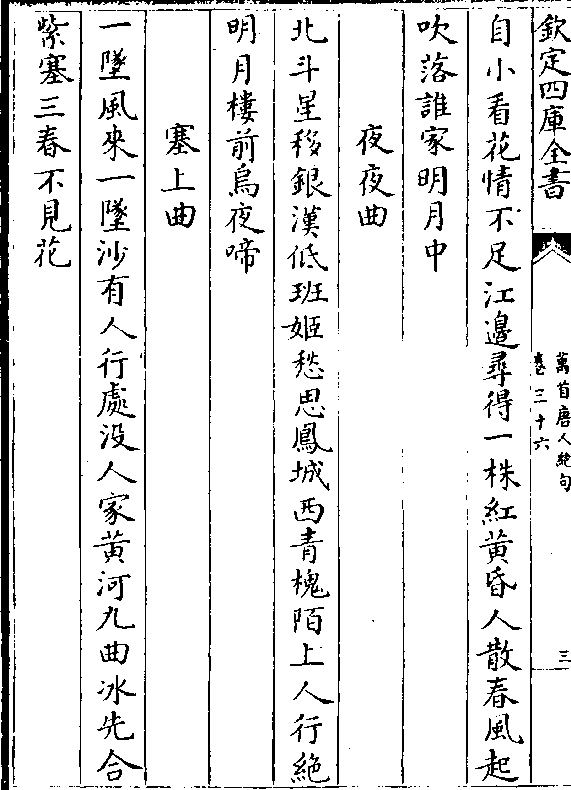 欽定四庫全書
萬首唐人絶句
卷三十六
三
自小看花情不足江邊尋得一株紅黄昏人散春風起
吹落誰家明月中
夜夜曲
北斗星移銀漢低班姬愁思鳳城西青槐陌上人行絶
明月樓前烏夜啼
塞上曲
一墜風來一墜沙有人行處没人家黄河九曲冰先合
紫塞三春不見花